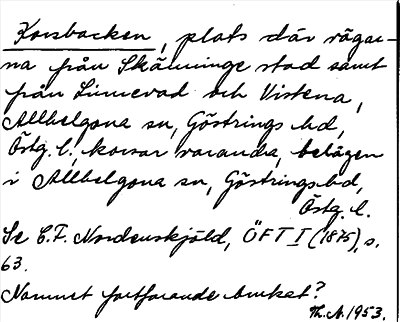 Korsbacken, plats där vägar-
na från Skänninge stad samt
från Linnevad och Vistena,
Allhelgona sn, Göstrings hd,
Östg. l., korsar varandra, belägen
i Allhelgona sn, Göstrings hd,
Östg. l.
Se C. F. Nordenskjöld, ÖFT I (1875), s.
63.
Namnet fortfarande brukat?
Th. A. 1953.